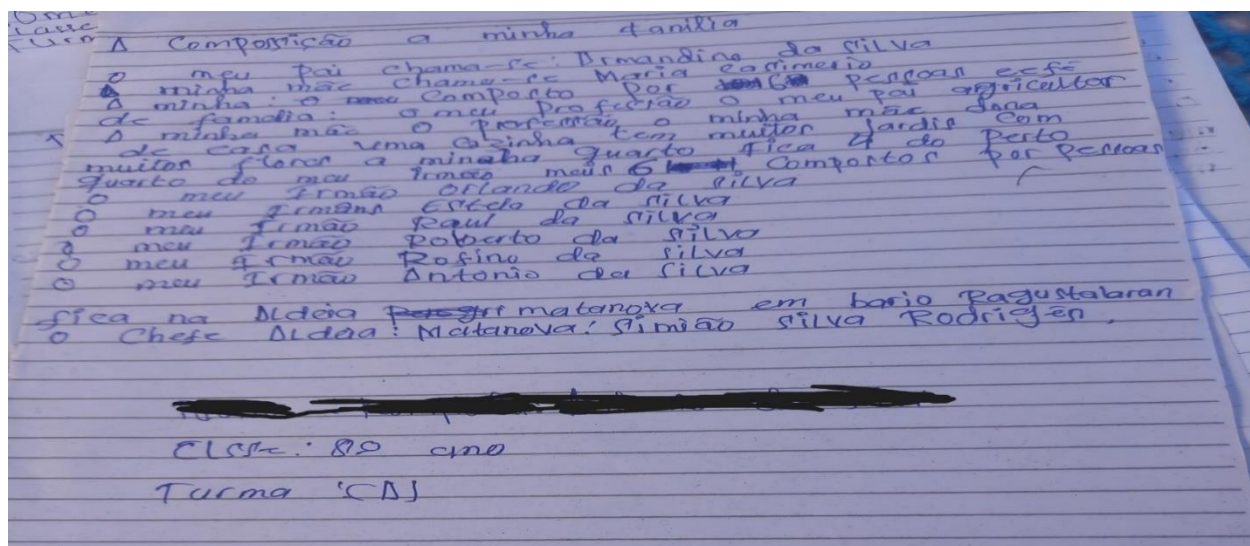 A Composição a minha família
O meu Pai chama-se: Armandino da Silva
A minha mãe chama-se Maria
A minha: o Composto por 6 Pessoas
de família: o meu Profecião o meu pai agricultor
A minha mãe o Profecsão o minha mãe dona
de casa uma cozinha tem muitos Jardis com
muitos flores a minha quarto fica do Perto
quarto do meu Irmão meus 6 Compostos por Pessoas
O meu Irmão Orlando da Silva
O meu Estela da Silva
O meu Irmão Raul da Silva
O meu Irmão Roberto da Silva
O meu Irmão Rofino da Silva
O meu Irmão Antonio da Silva
fica na Aldeia matanova em bario Pagustalaran
O Chefe Aldeia: Matanova: Simião Silva
ano
Turma